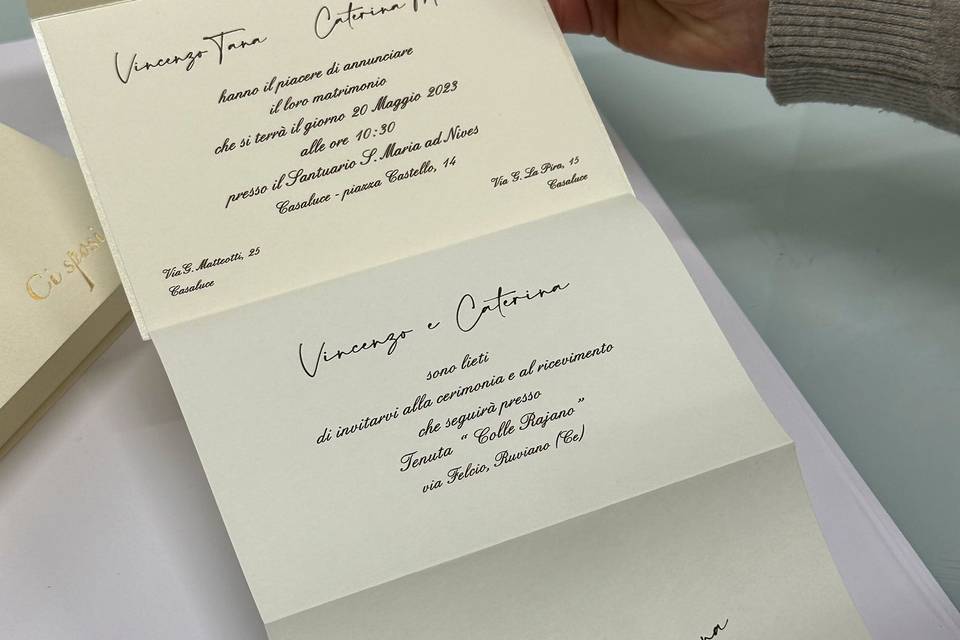 Vincenzo Tana Caterina
hanno il piacere di annunciare
il loro matrimonio
che si terrà il giorno 20 Maggio 2023
alle ore 10:30
presso il Santuario S. Maria ad Nives
Casaluce - piazza Castello, 14
Via G. La Pira, 15
Casaluce
Via G. Matteotti, 25
Casaluce
Ci sposi
Vincenzo e Caterina
sono lieti
di invitarvi alla cerimonia e al ricevimento
che seguirà presso
Tenuta “ Colle Rajano”
via Felcio, Ruviano (Ce)